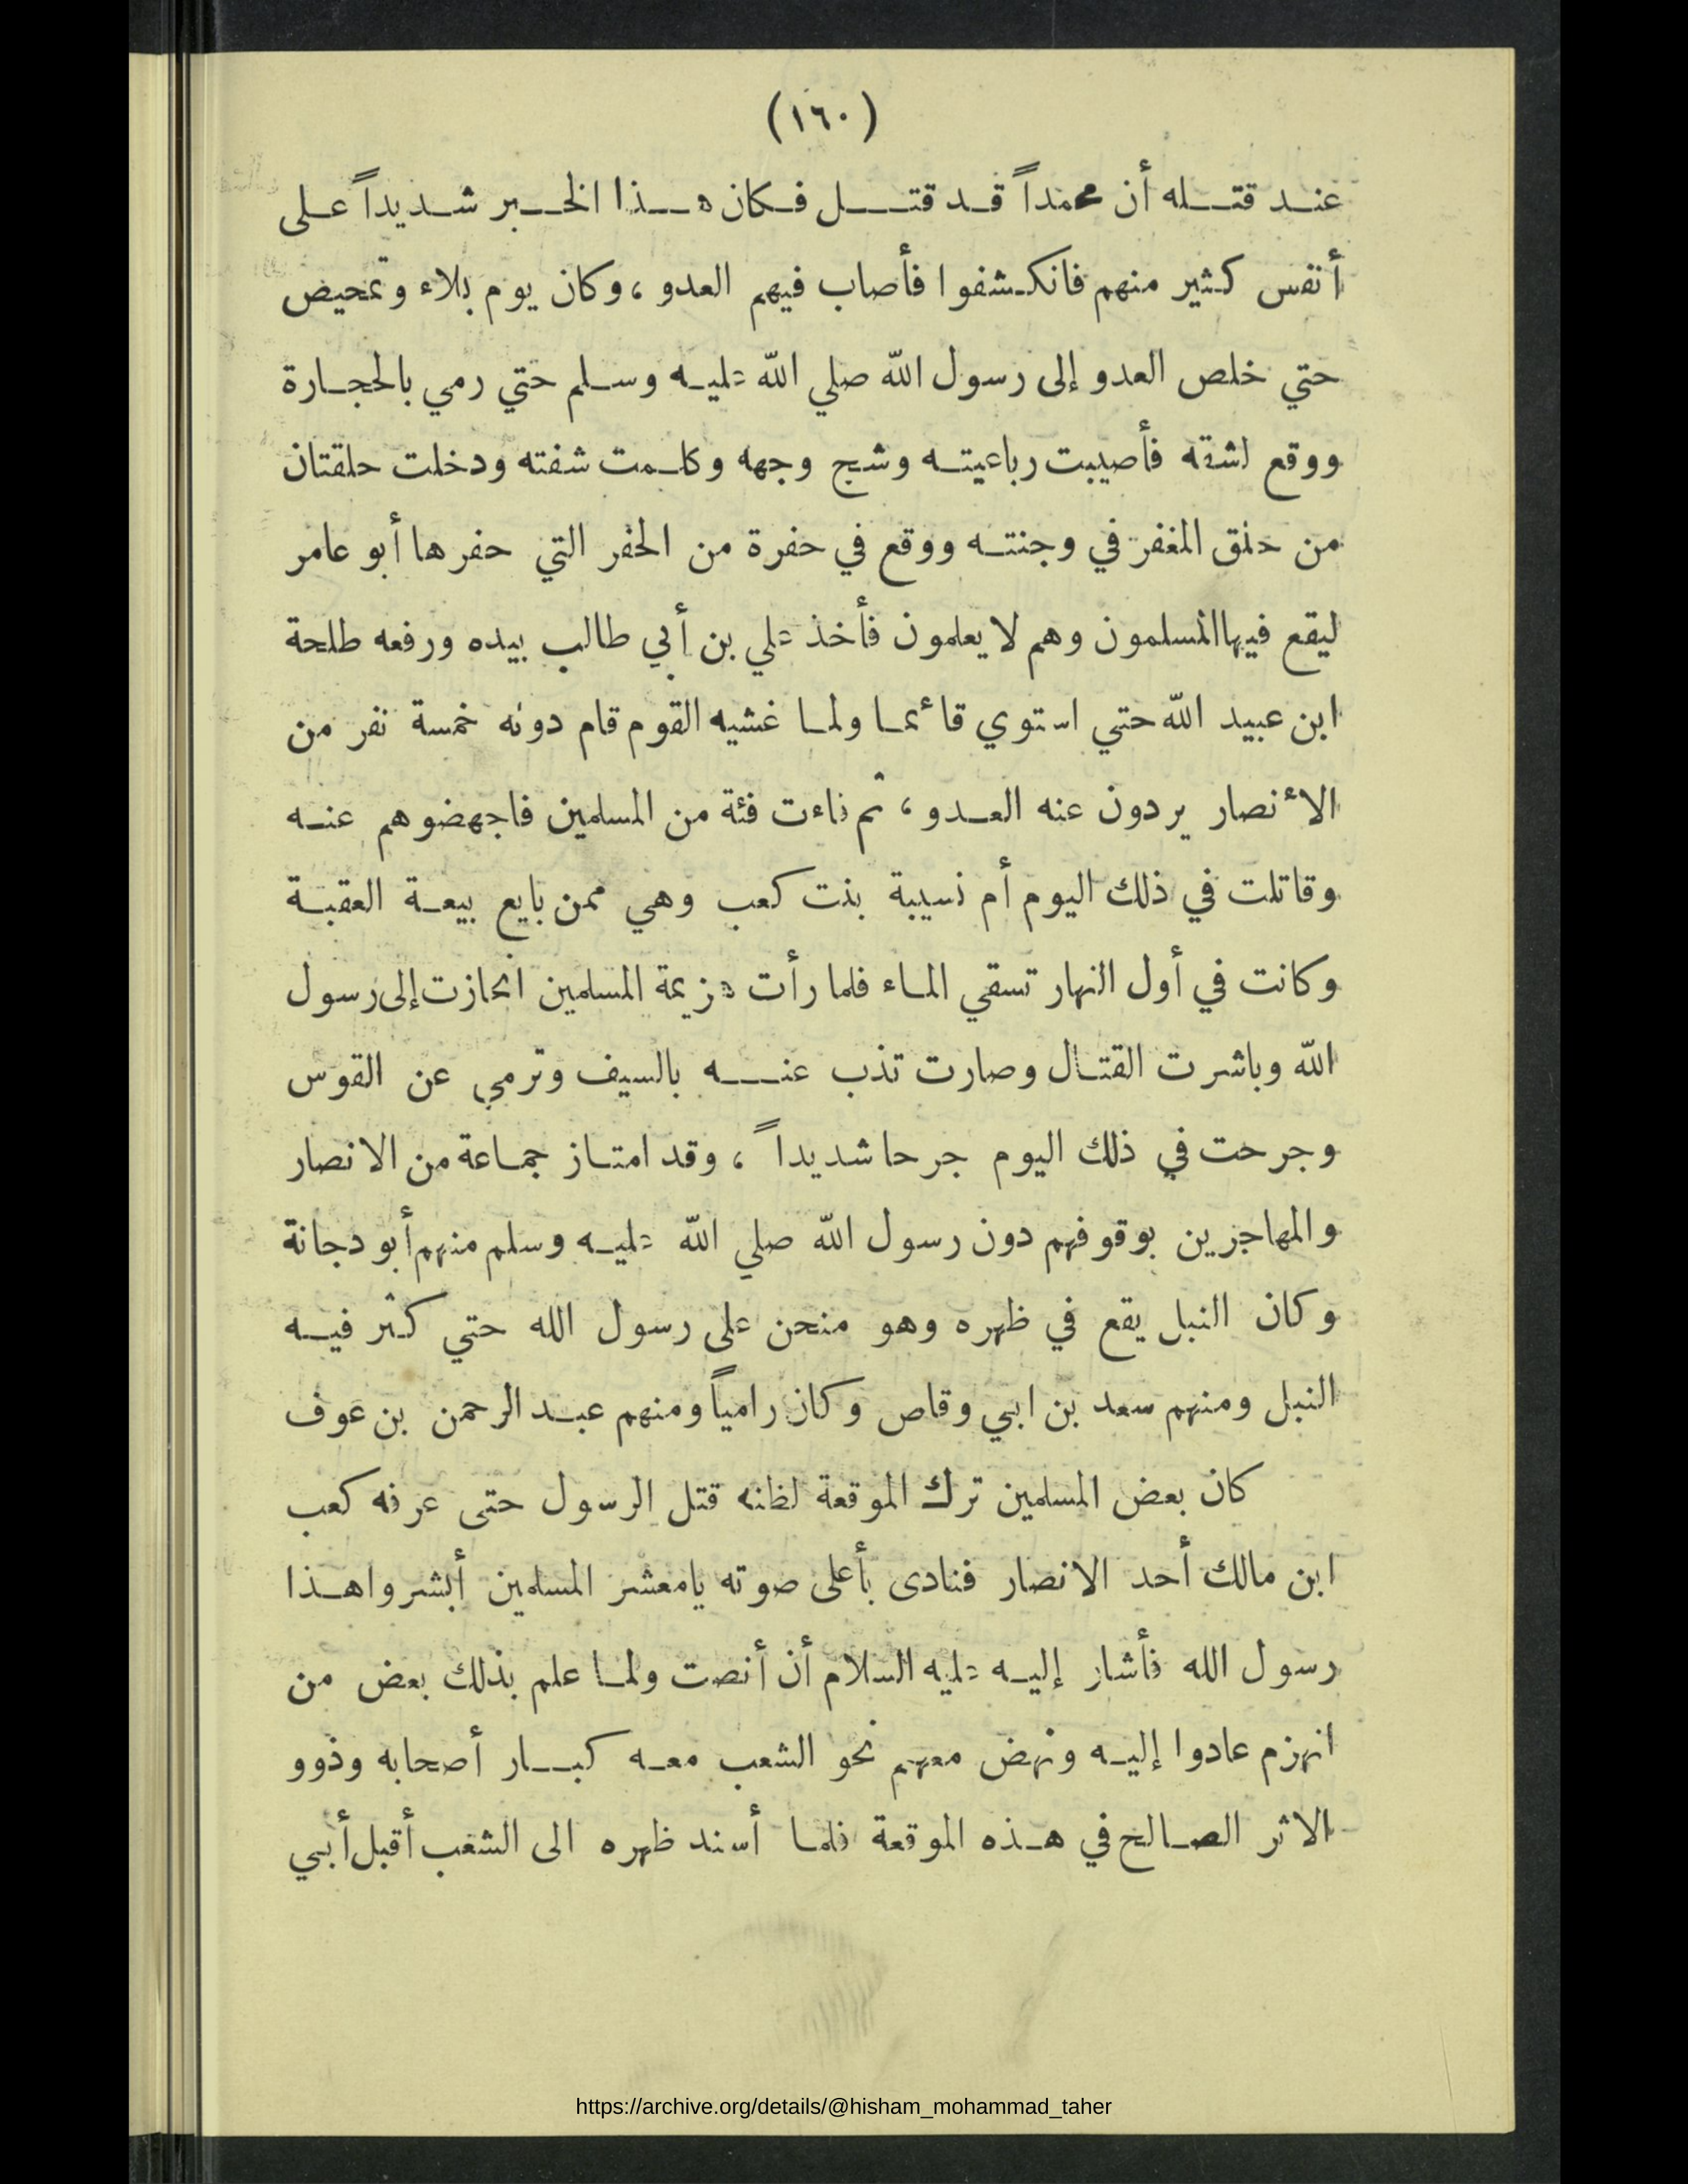 (١٦٠)
عند قتله أن محمداً قد قتل فكان هذا الخبر شديداً على
أنفس كثير منهم فانكشفوا فأصاب فيهم العدو ، وكان يوم بلاء وتمحيص
حتي خلص العدو إلى رسول الله صلي الله عليه وسلم حتي رمي بالحجارة
ووقع لشقه فأصيبت رباعيته وشج وجهه وكلمت شفته ودخلت حلقتان
من حلق المغفر في وجنته ووقع في حفرة من الحفر التي حفرها أبو عامر
ليقع فيها المسلمون وهم لا يعلمون فأخذ علي بن أبي طالب بيده ورفعه طلحة
ابن عبيد الله حتي استوي قائما ولما غشيه القوم قام دونه خمسة نفر من
الأنصار يردون عنه العدو ، ثم ناءت فئة من المسلمين فاجهضوهم عنه
وقاتلت في ذلك اليوم أم نسيبة بنت كعب وهي ممن بايع بيعة العقبة
وكانت في أول النهار تسقي الماء فلما رأت هزيمة المسلمين انحازت إلى رسول
الله وباشرت القتال وصارت تذب عنه بالسيف وترمي عن القوس
وجرحت في ذلك اليوم جرحا شديداً ، وقد امتاز جماعة من الانصار
والمهاجرين بوقوفهم دون رسول الله صلي الله عليه وسلم منهم أبو دجانة
وكان النبل يقع في ظهره وهو منحن على رسول الله حتي كثر فيه
النبل ومنهم سعد بن ابي وقاص وكان رامياً ومنهم عبد الرحمن بن عوف
كان بعض المسلمين ترك الموقعة لظنه قتل الرسول حتى عرفه كعب
ابن مالك أحد الانصار فنادى بأعلى صوته يامعشر المسلمين أبشروا هذا
رسول الله فأشار إليه عليه السلام أن أنصت ولما علم بذلك بعض من
انهزم عادوا إليه ونهض معهم نحو الشعب معه كبار أصحابه وذوو
الاثر الصالح في هذه الموقعة فلما أسند ظهره الى الشعب أقبل أبي
https://archive.org/details/@hisham_mohammad_taher